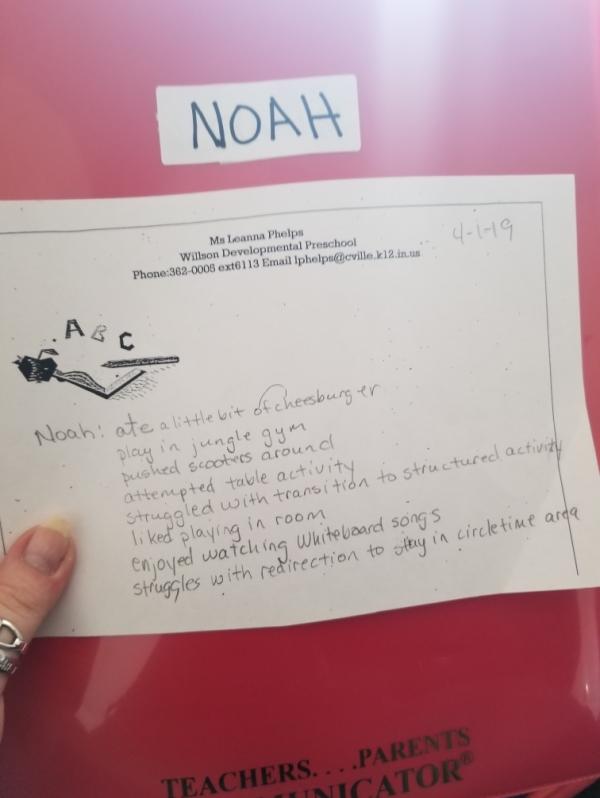 NOAH
Ms Leanna Phelps
4-1-19
Willson Developmental Preschool
Phone:362-0005 ext6113 Email lphelps@cville.k12.in.us
A B C
Noah: ate a little bit of cheesburger
play in jungle gym
pushed scooters around
attempted table activity
struggled with transition to structured activity
liked playing in room
enjoyed watching Whiteboard songs
struggles with redirection to stay in circletime area
TEACHERS....PARENTS
MUNICATOR®